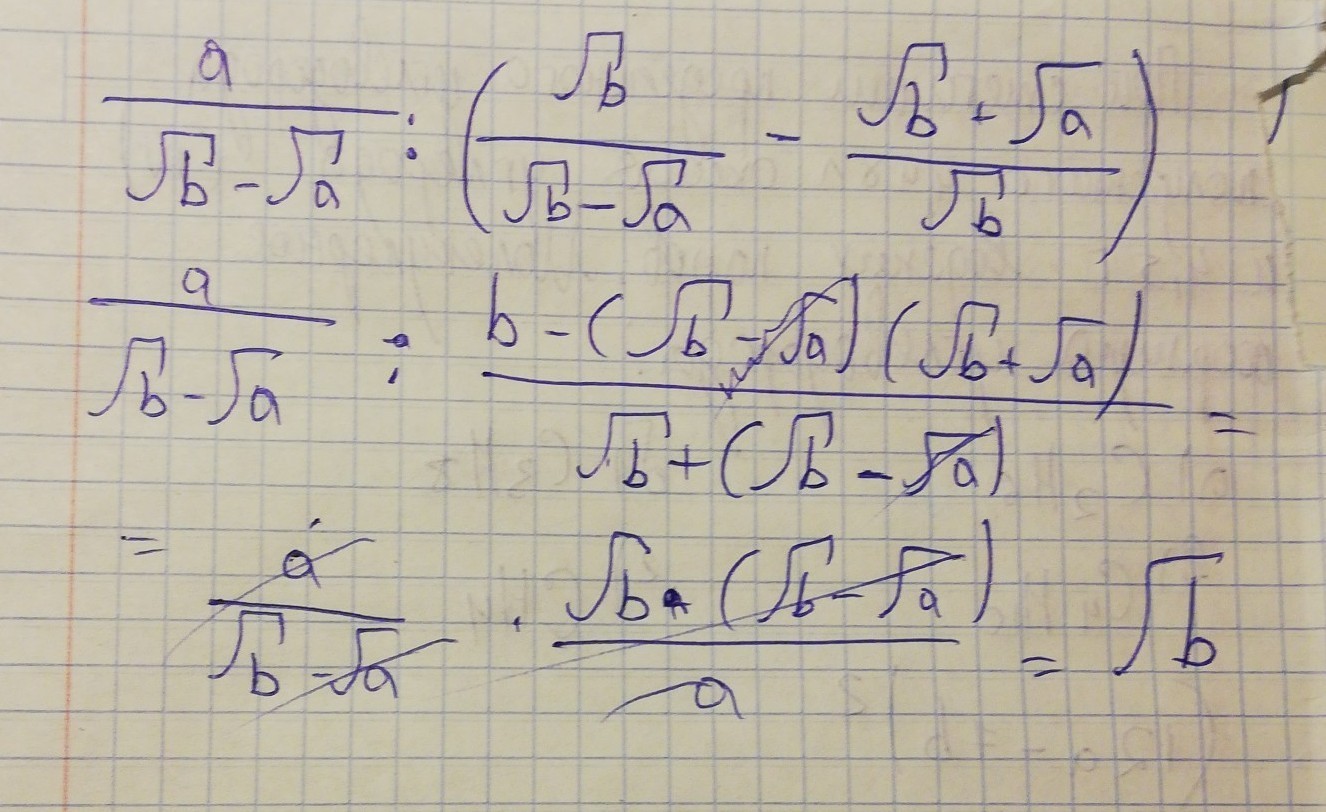 a/(√b - √a) : (√b/(√b - √a) - (√b + √a)/√b)
a/(√b - √a) : (b - (√b - √a)(√b + √a))/(√b + (√b - √a)) =
= a/(√b - √a) · (√b · (√b - √a))/a = √b